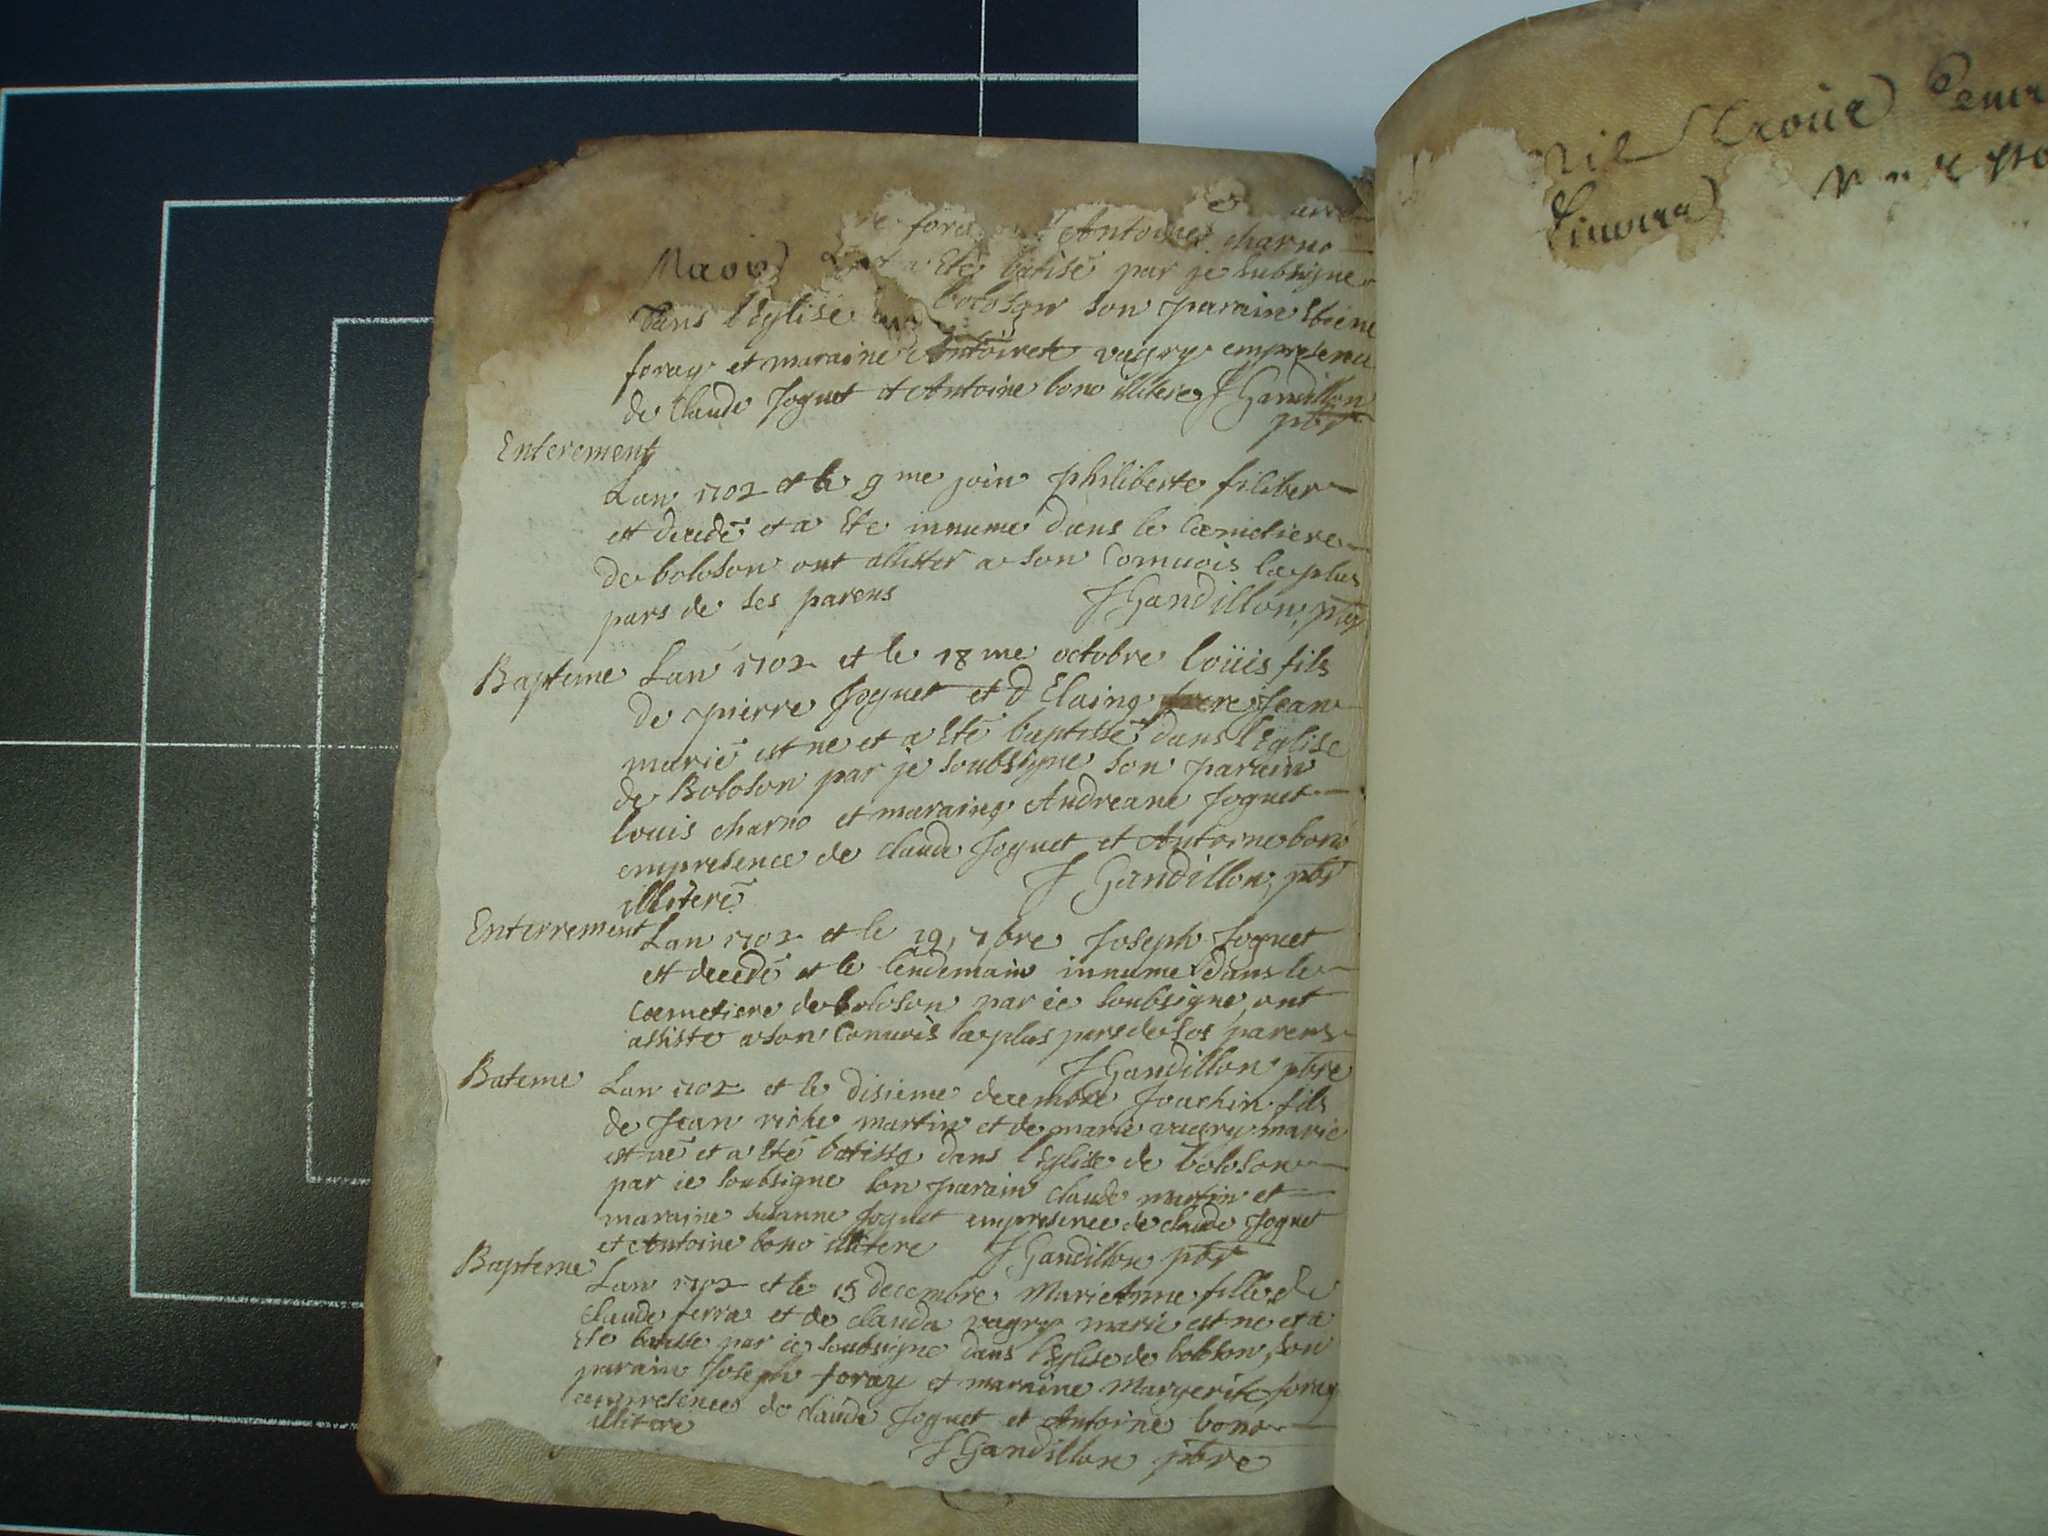 Antoine charno
a Eté batisé par je subsigne
Dans l'Eglise boloson son parain Etiene
foray et maraine Antoinete vagry empresence
de Claude Joguet et Antoine bono illitere J Gandillon
pbr
Enterement
Lan 1702 et le 9me join philiberte filiber
est decedé et a Ete innume dans le Cæmetiere
de boloson ont assister a son Convois la plus
pars de ses parens J Gandillon, pbr
Bapteme Lan 1702 et le 18me octobre loüis fils
de pierre Joguet et d Elaine Jean
marié est ne et a Eté baptissé dans l'Eglise
de Boloson par je soubsigne son parain
louis charno et maraine Andreane Joguet
empresence de claude Joguet et Antoine bono
illiteré J Gandillon, pbr
Enterrement Lan 1702 et le 19, 7bre Joseph Joguet
est decedé et le lendemain innume dans le
Cæmetiere de boloson par ie soubsigne ont
assiste a son Convois la plus pars de ses parens
J Gandillon pbre
Bateme Lan 1702 et le disieme decembre Joachin fils
de Jean riche martin et de marie vagry marie
est né et a Eté batisse dans l'Eglise de boloson
par ie soubsigne son parain claude martin et
maraine susanne Joguet empresence de claude Joguet
et Antoine bono illitere J Gandillon pbr
Bapteme Lan 1702 et le 15 decembre Marie Anne fille de
Claude ferra et de clauda vagry marie est ne et a
Ete batisse par ie soubsigne dans l'Eglise de boloson, son
parain Joseph foray et maraine Margerite foray
empresence de claude Joguet et Antoine bono
illitere
J Gandillon pbre